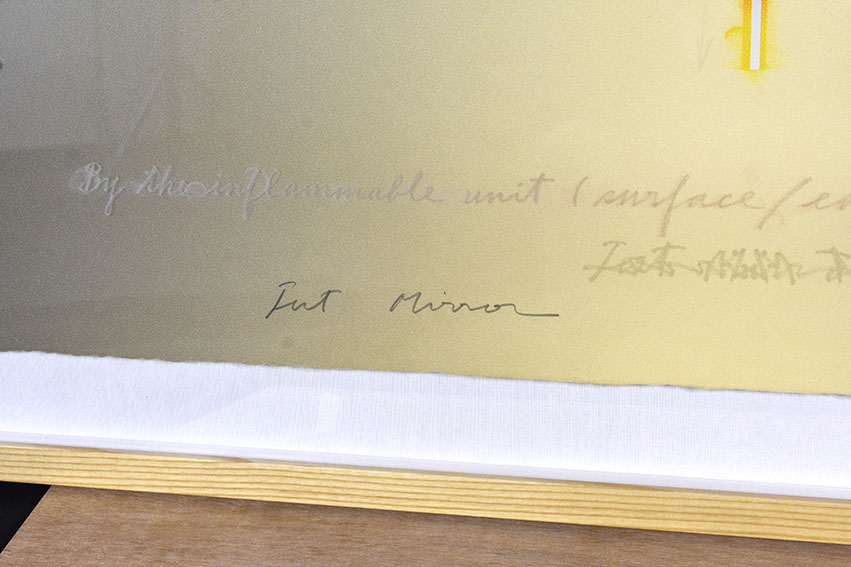 By the inflammable unit (surface/en
Jut Mirror